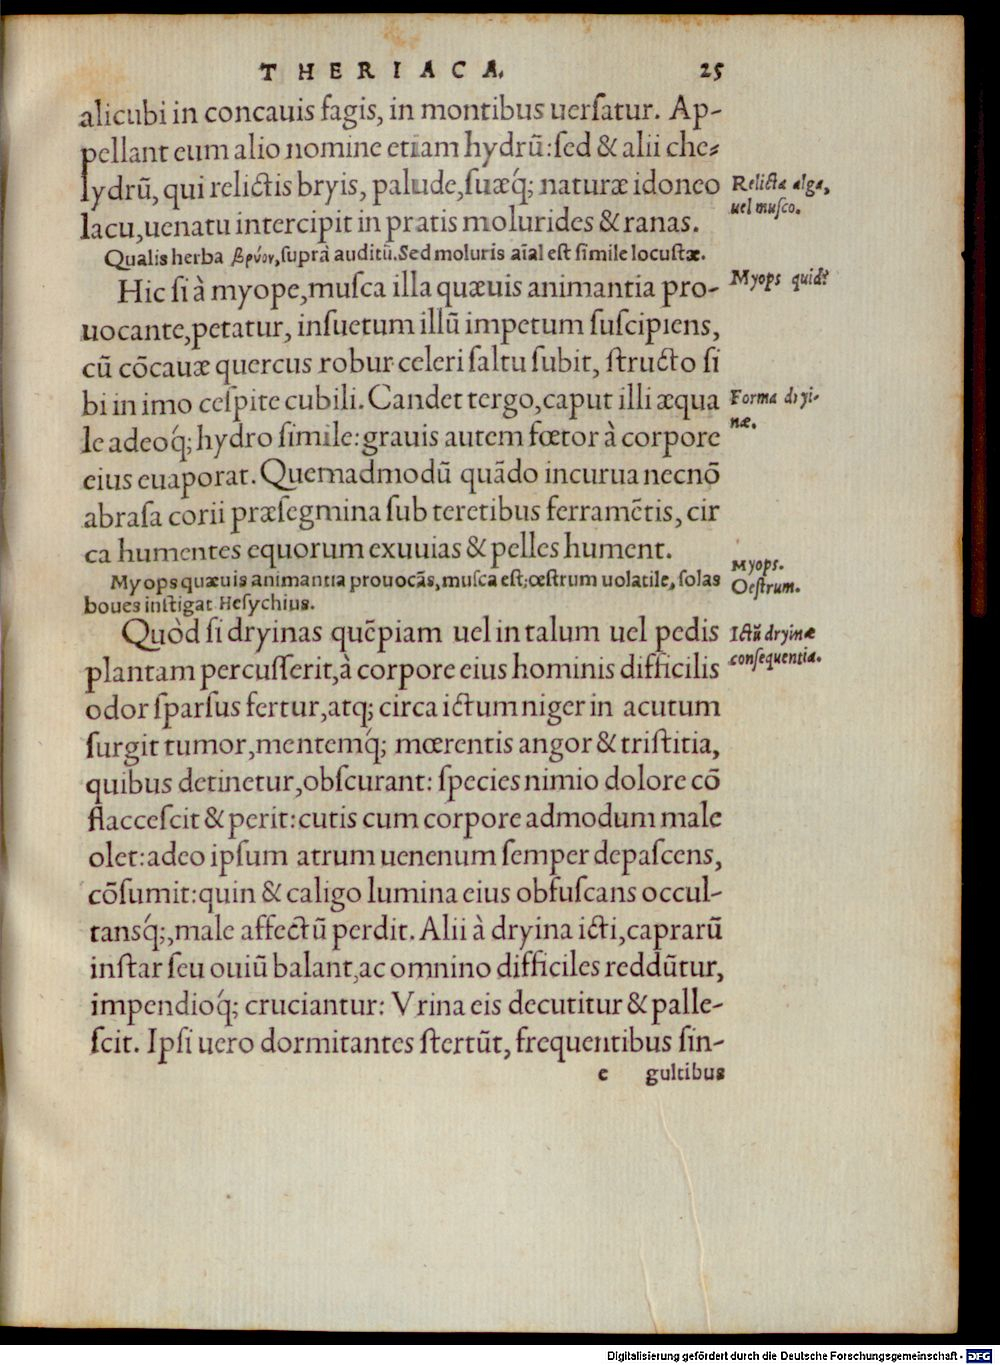 THERIACA. 25
alicubi in concauis fagis, in montibus uerſatur. Ap-
pellant eum alio nomine etiam hydrũ: ſed & alii che-
lydrũ, qui relictis bryis, palude, ſuæq́; naturæ idoneo
Relicta alga,
uel muſco.
lacu, uenatu intercipit in pratis molurides & ranas.
Qualis herba βρύον, ſuprà auditũ. Sed moluris aĩal eſt ſimile locuſtæ.
Hic ſi à myope, muſca illa quæuis animantia pro-
Myops quid?
uocante, petatur, inſuetum illũ impetum ſuſcipiens,
cũ cõcauæ quercus robur celeri ſaltu ſubit, ſtructo ſi
bi in imo ceſpite cubili. Candet tergo, caput illi æqua
Forma dryi-
næ.
le adeoq́; hydro ſimile: grauis autem fœtor à corpore
eius euaporat. Quemadmodũ quãdo incurua necnõ
abraſa corii præſegmina ſub teretibus ferramẽtis, cir
ca humentes equorum exuuias & pelles hument.
Myops quæuis animantia prouocãs, muſca eſt; œſtrum uolatile, ſolas
Myops.
Oeſtrum.
boues inſtigat Heſychius.
Quòd ſi dryinas quẽpiam uel in talum uel pedis
Ictũ dryinæ
conſequentia.
plantam percuſſerit, à corpore eius hominis difficilis
odor ſparſus fertur, atq; circa ictum niger in acutum
ſurgit tumor, mentemq́; mœrentis angor & triſtitia,
quibus detinetur, obſcurant: ſpecies nimio dolore cõ
flacceſcit & perit: cutis cum corpore admodum male
olet: adeo ipſum atrum uenenum ſemper depaſcens,
cõſumit: quin & caligo lumina eius obfuſcans occul-
tansq́;, male affectũ perdit. Alii à dryina icti, caprarũ
inſtar ſeu ouiũ balant, ac omnino difficiles reddũtur,
impendioq́; cruciantur: Vrina eis decutitur & palle-
ſcit. Ipſi uero dormitantes ſtertũt, frequentibus ſin-
e gultibus
Digitalisierung gefördert durch die Deutsche Forschungsgemeinschaft - DFG